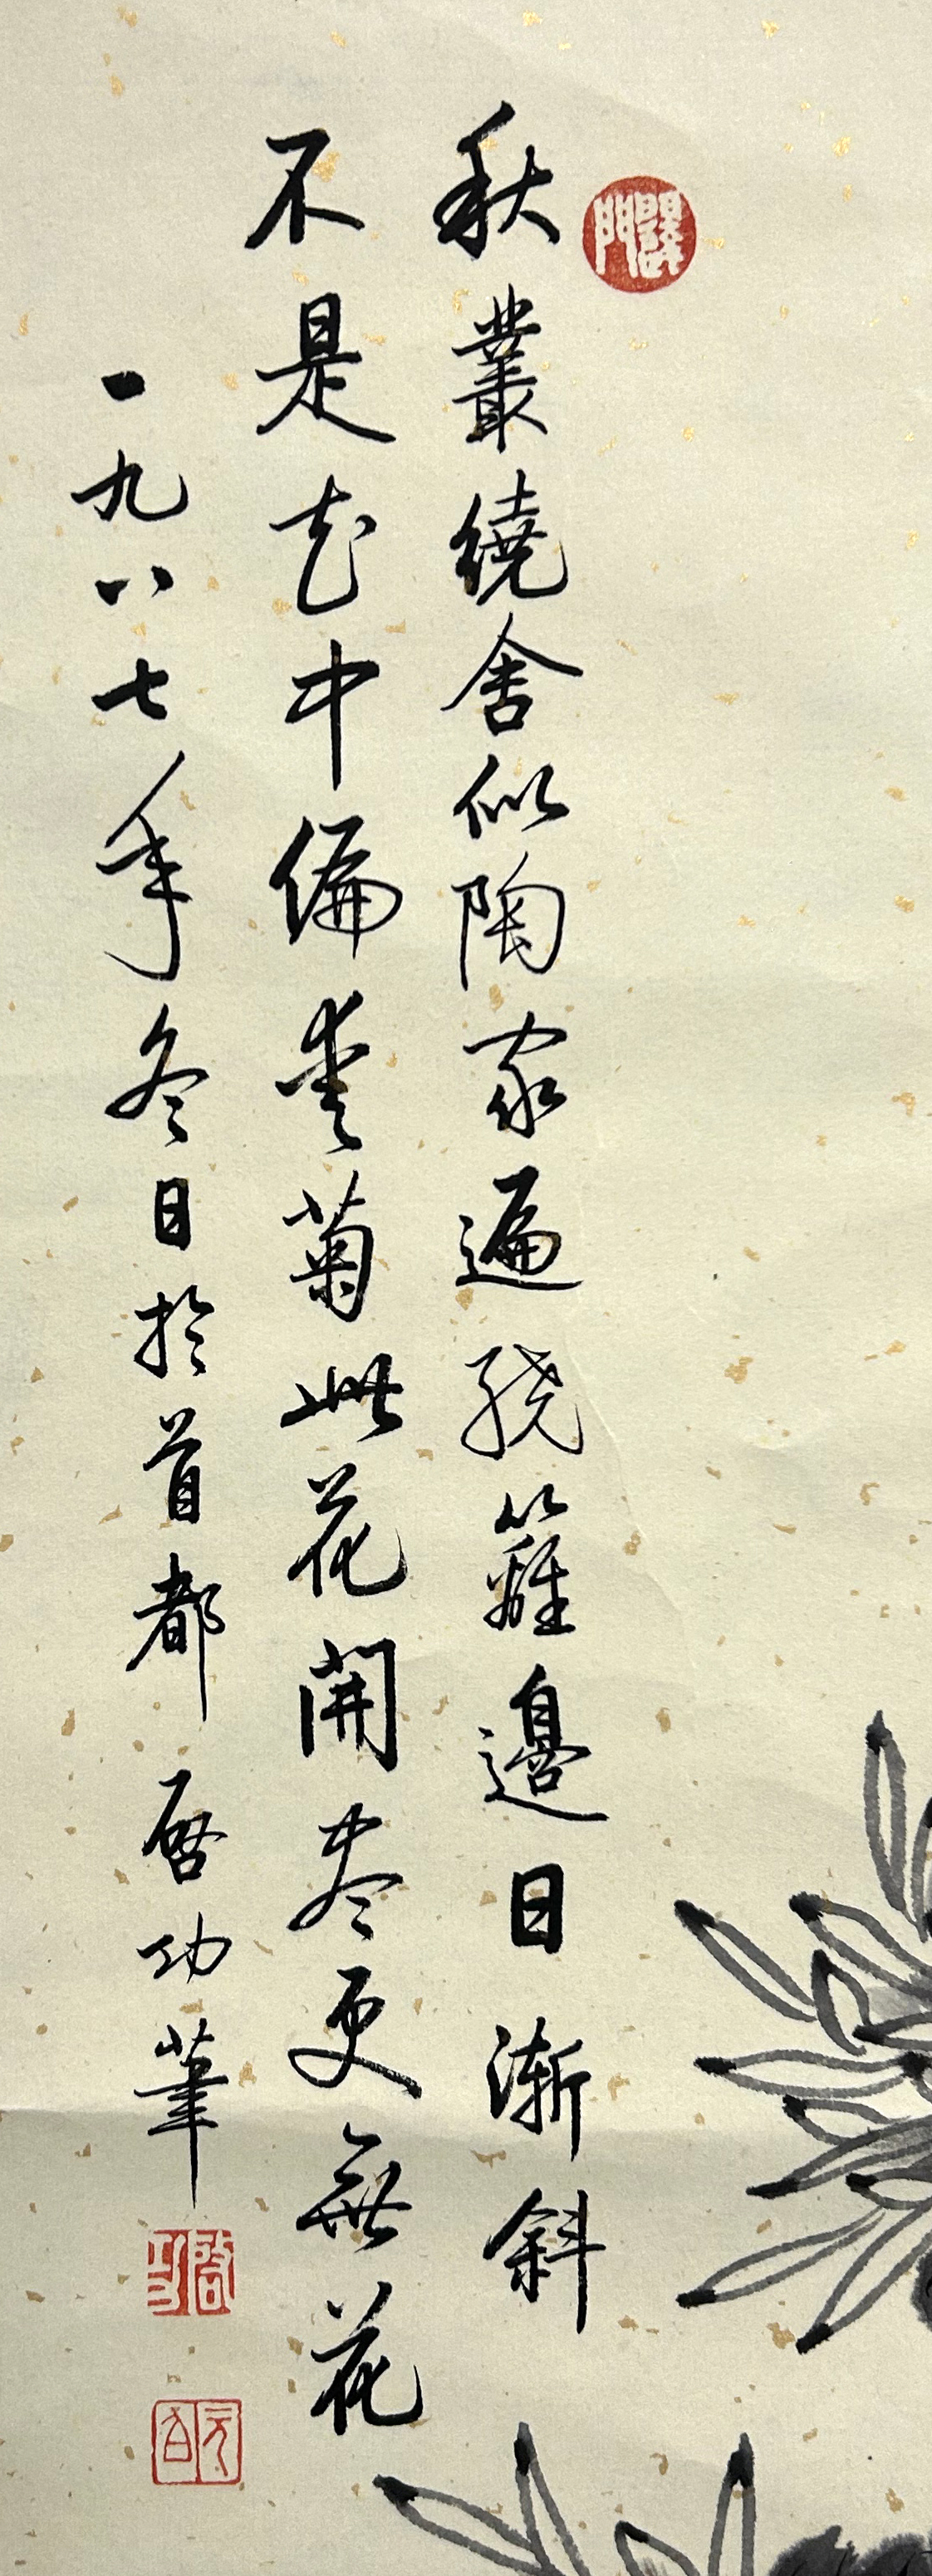 秋叢繞舍似陶家遍繞籬邊日漸斜
不是花中偏愛菊此花開盡更無花
一九八七年冬日於首都 启功筆
啟功
元白